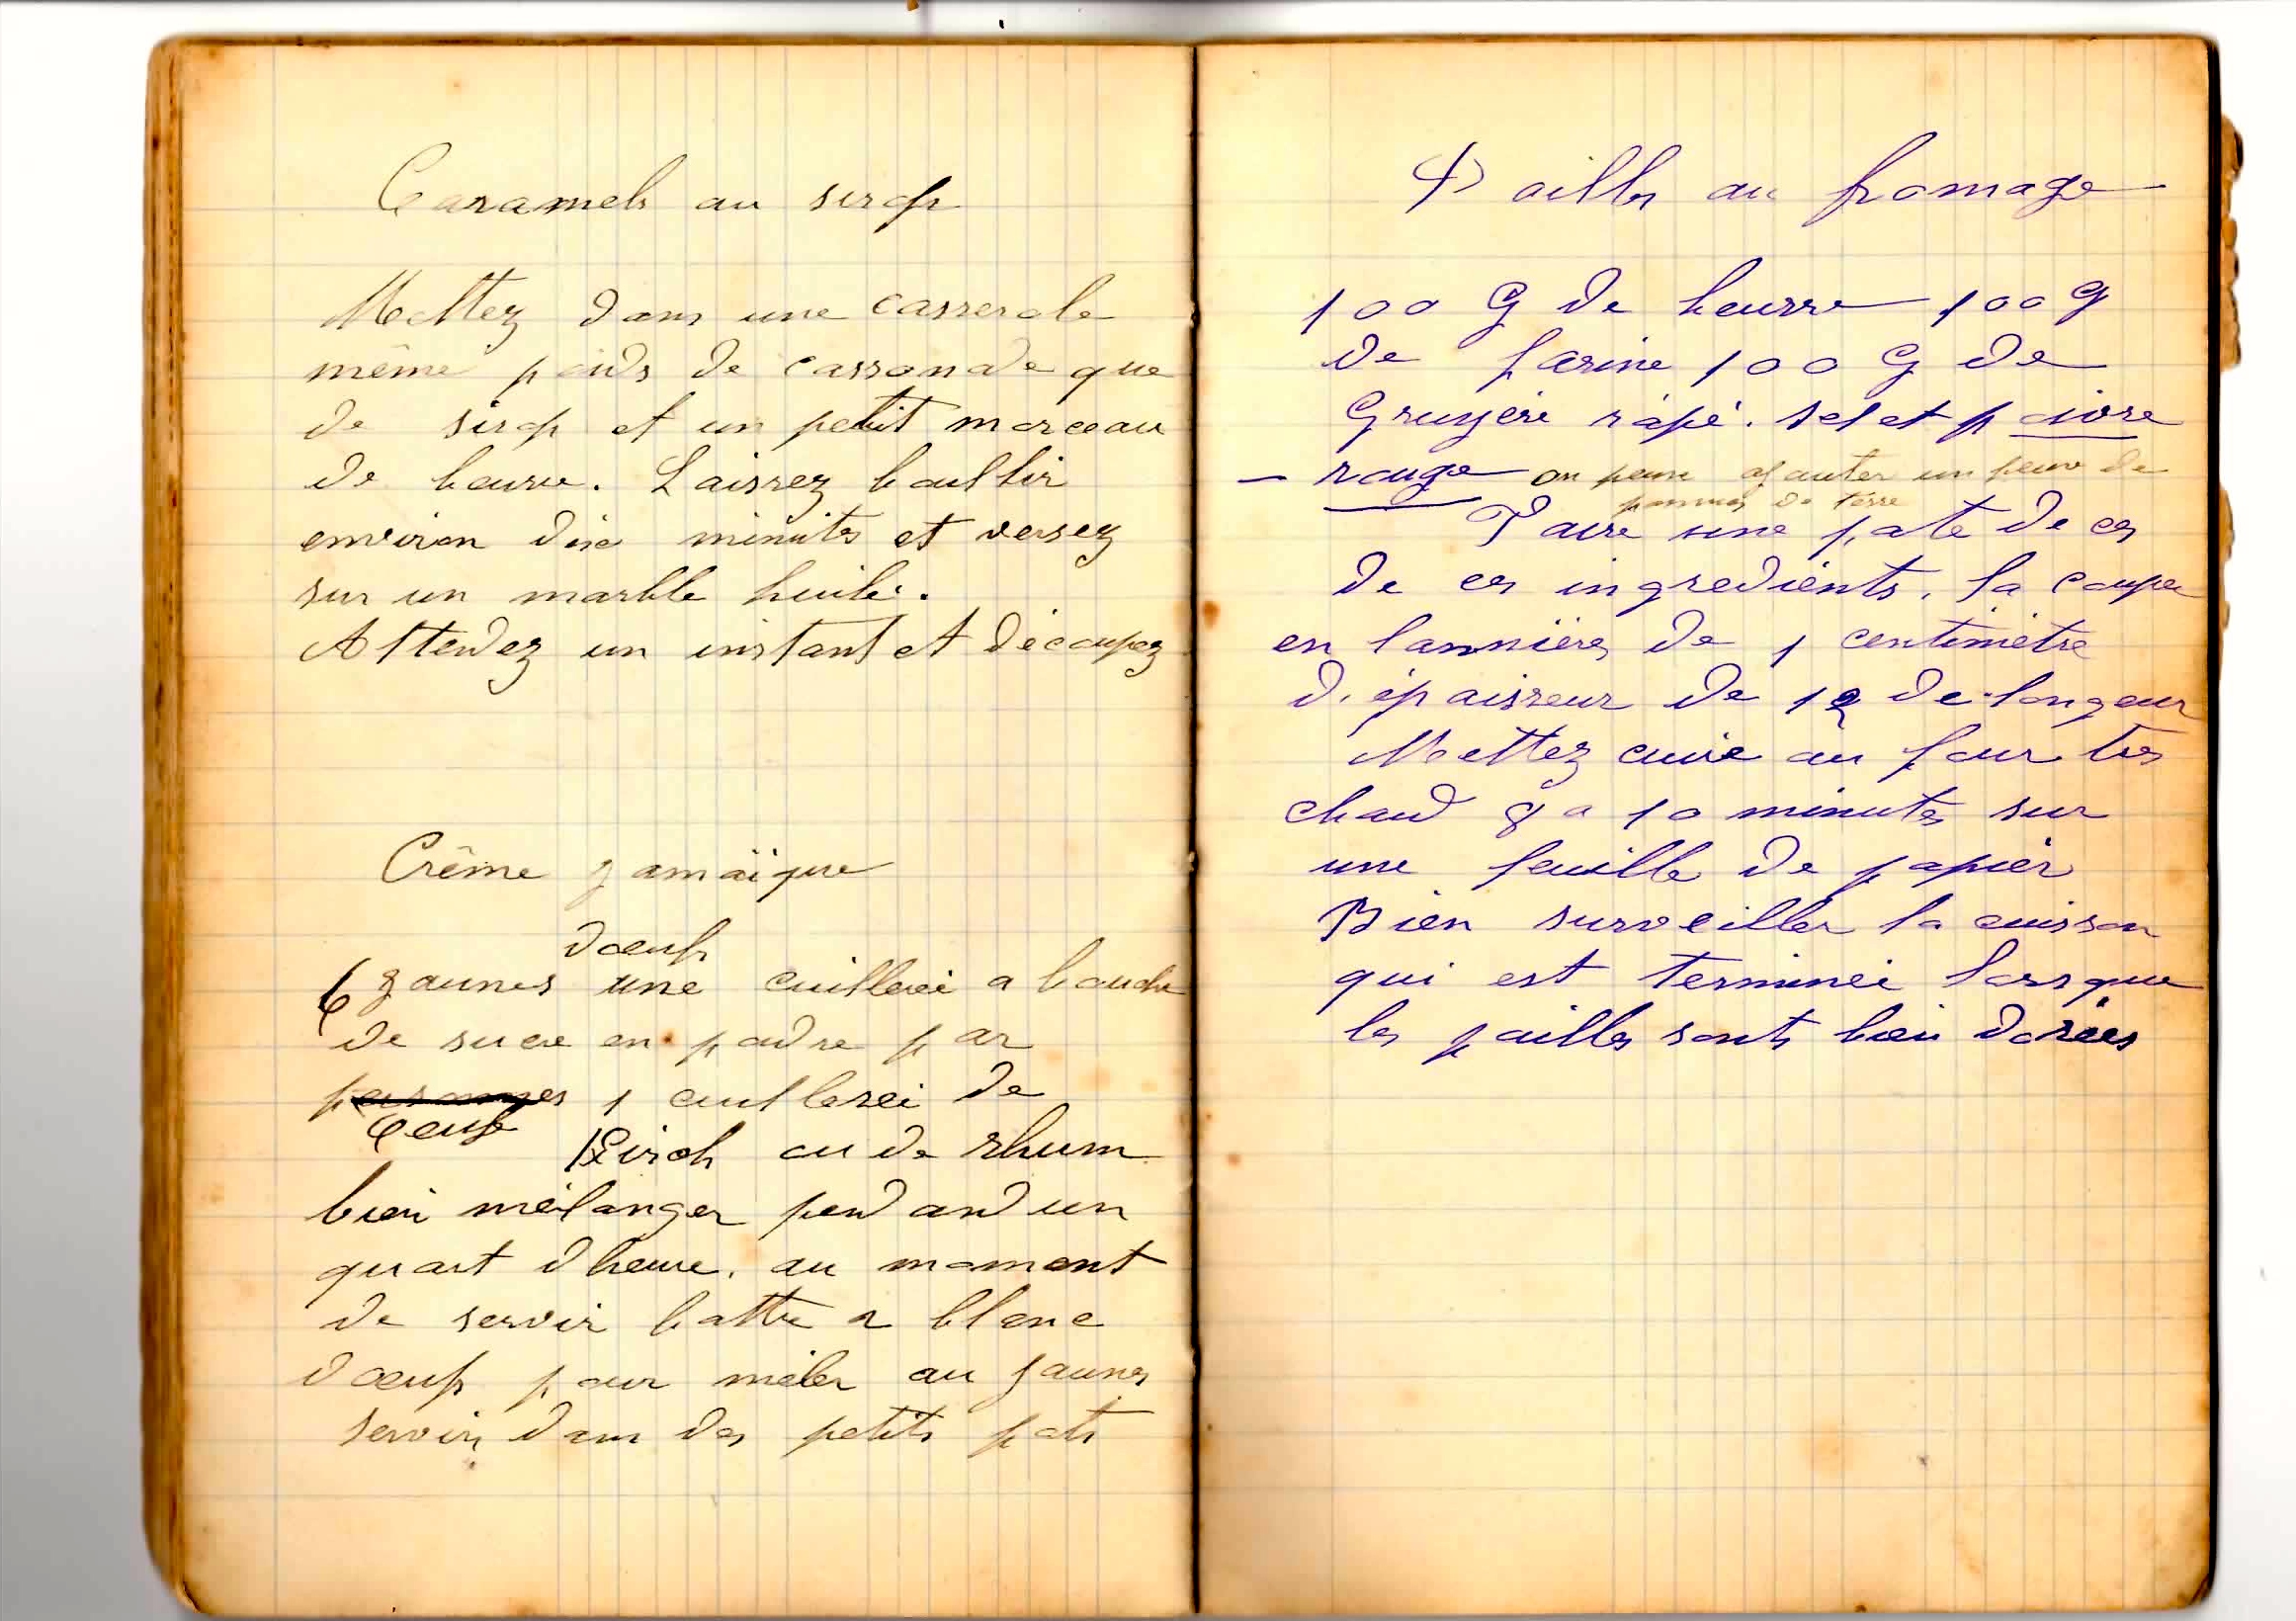 Caramels au sirop
Mettez dans une casserole
même poids de cassonade que
de sirop et un petit morceau
de beurre. Laissez bouillir
environ dix minutes et versez
sur un marbre huilé.
Attendez un instant et découpez
Crême jamaïque
doeufs
6 jaunes une cuillerée a bouche
de sucre en poudre par
personnes 1 cuillerée de
oeuf
Kirch ou de rhum
bien mélanger pendand un
quart dheure. au moment
de servir battre 2 blanc
doeufs pour mêler au jaunes
servir dans des petits pots
Pailles au fromage
100 G de beurre 100 g
de farine 100 G de
Gruyère rapé. sel et poivre
- rouge on peux ajouter un peux de
pommes de terre
Faire une pate de ces
de ces ingredients. la couper
en lannières de 1 centimètre
d'épaisseur de 12 de longeur
Mettez cuire au four tres
chaud 8 a 10 minutes sur
une feuille de papier
Bien surveiller la cuisson
qui est terminée lorsque
les pailles sont bien dorées